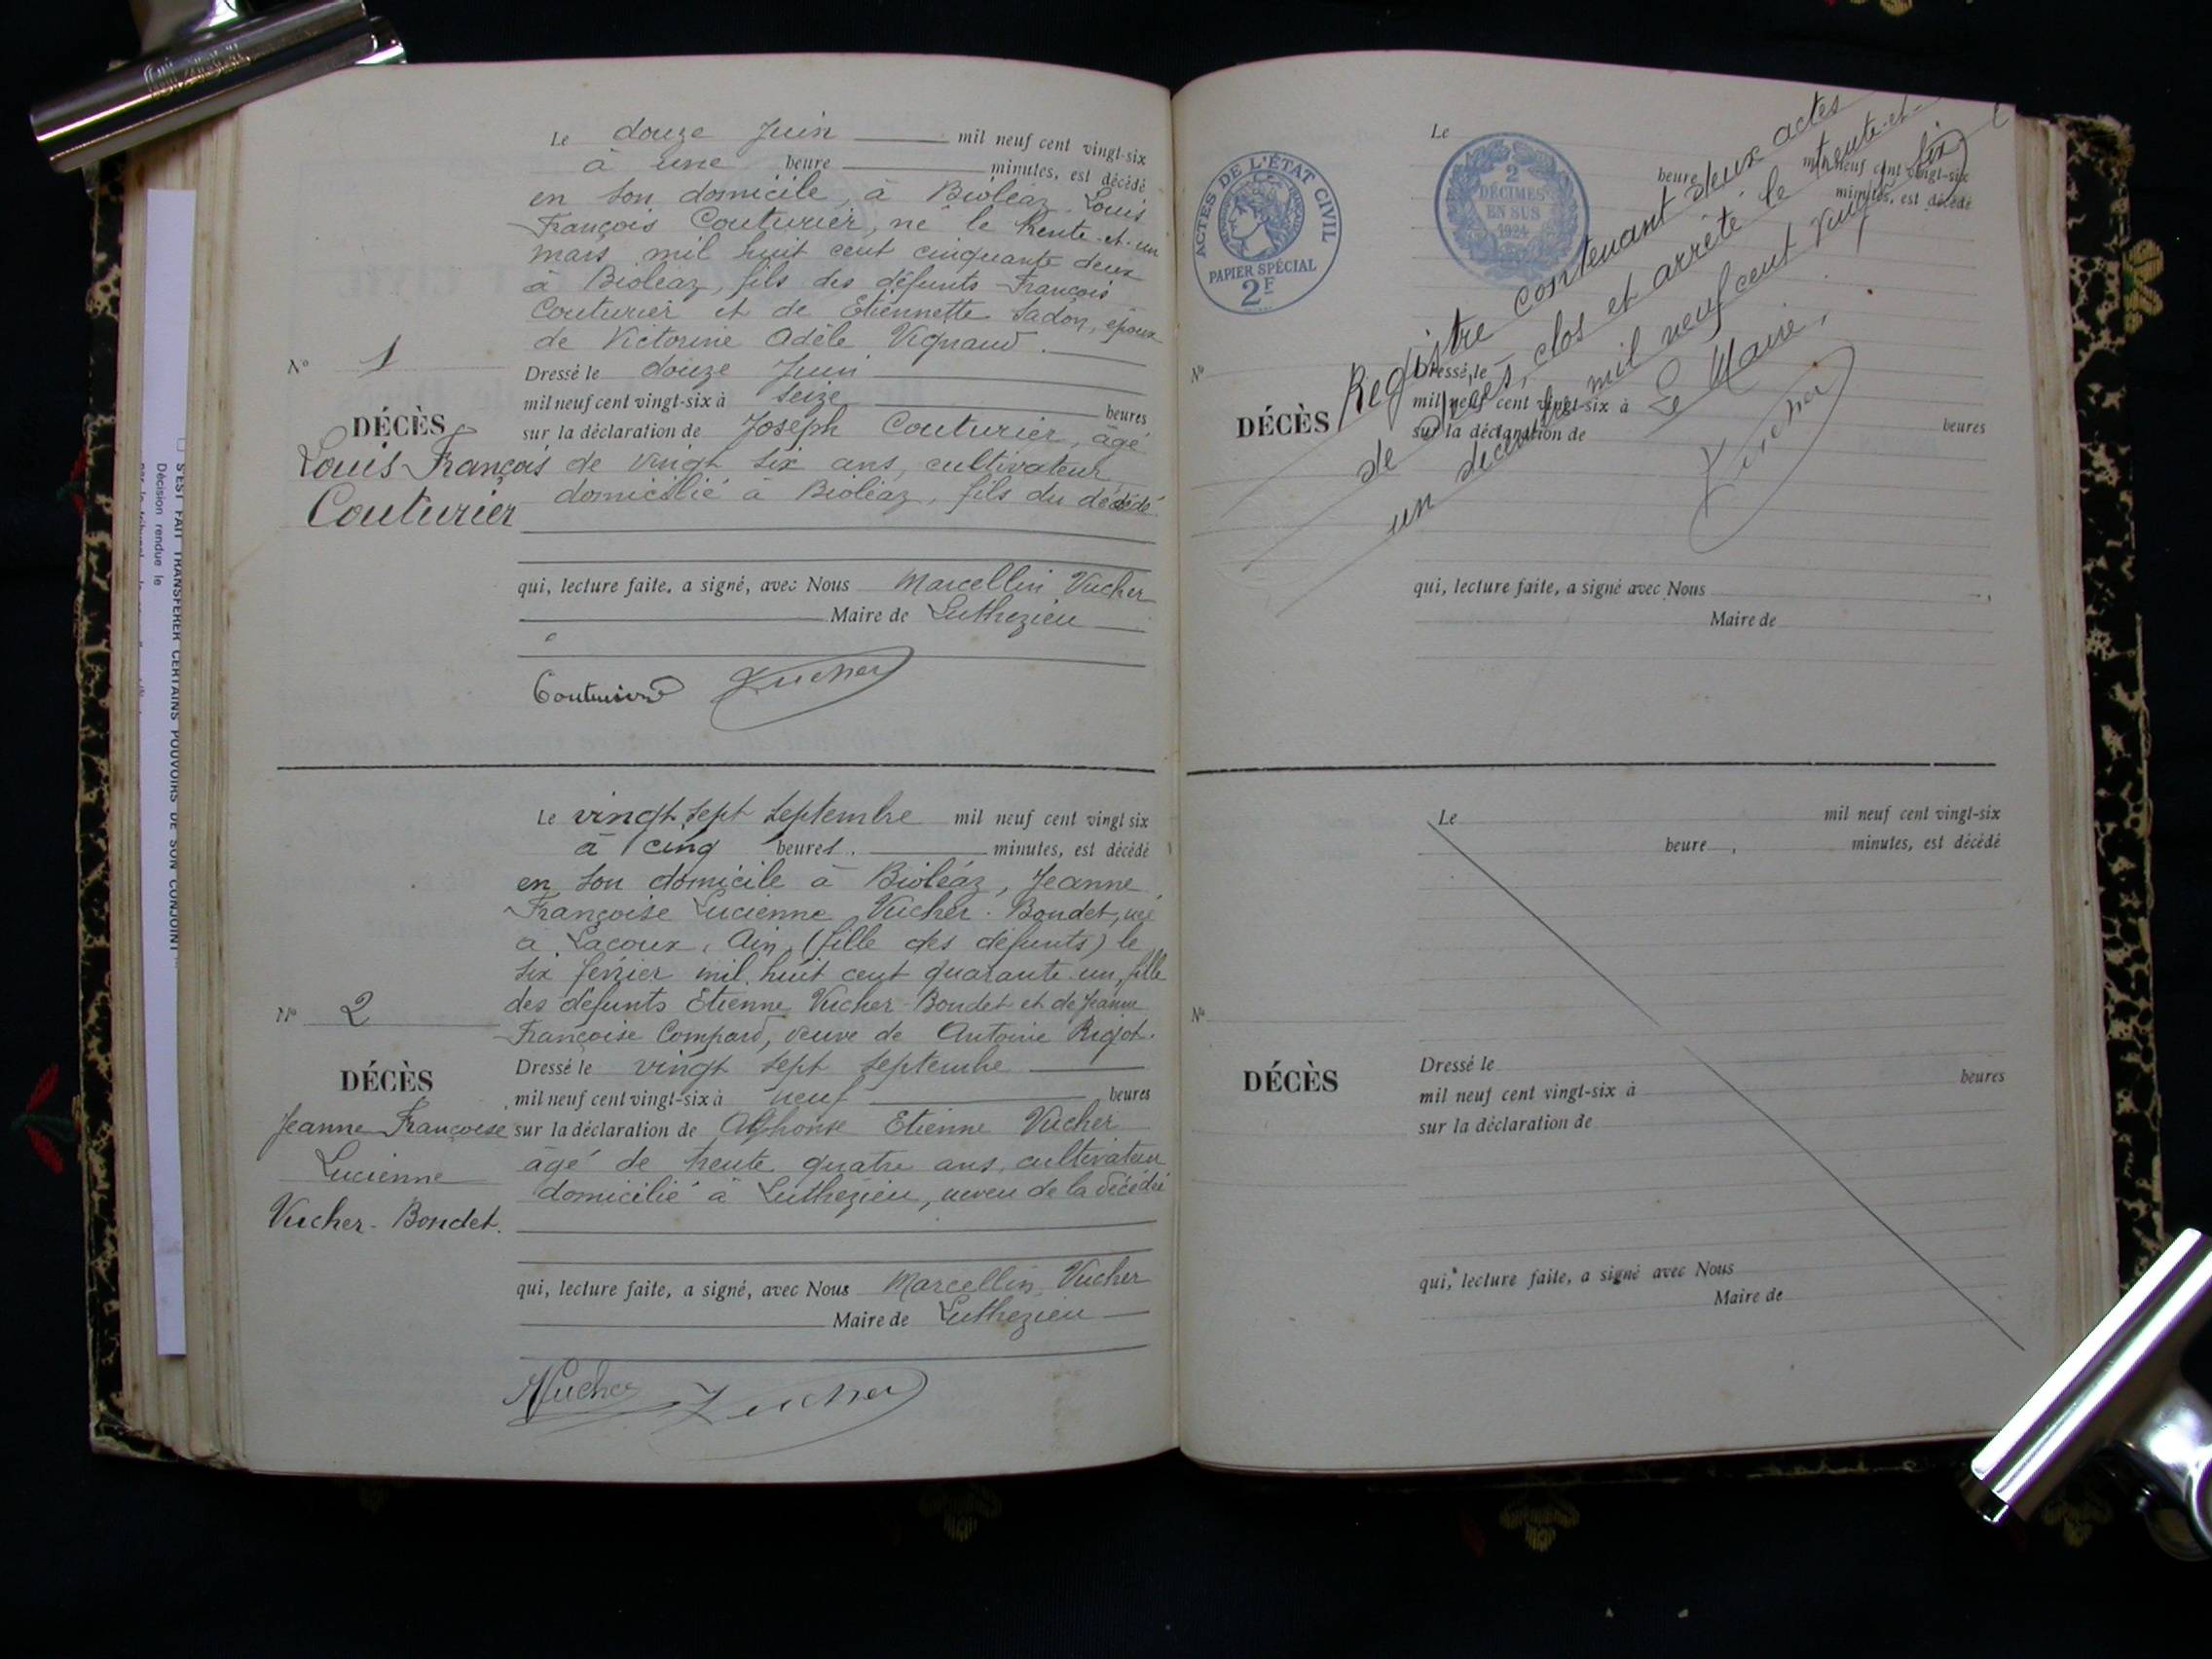 Le douze Juin mil neuf cent vingt-six
à une heure minutes, est décédé
en son domicile, à Bioléaz, Louis
François Couturier, né le trente-et-un
mars mil huit cent cinquante deux
à Bioléaz, fils des défunts François
Couturier et de Etiennette Sadon, époux
de Victorine Adèle Vignaud.
N° 1
Dressé le douze Juin
mil neuf cent vingt-six à seize heures
DÉCÈS
sur la déclaration de Joseph Couturier, âgé
Louis François
Couturier
de vingt six ans, cultivateur
domicilié à Bioléaz, fils du décédé
qui, lecture faite, a signé, avec Nous Marcellin Vucher
Maire de Luthezieu
Couturier Vucher
Le vingt sept septembre mil neuf cent vingt six
à cinq heures minutes, est décédé
en son domicile à Bioléaz, Jeanne
Françoise Lucienne Vucher-Bondet, née
à Lacoux, Ain, (fille des défunts) le
six février mil huit cent quarante un, fille
des défunts Etienne Vucher-Bondet et de Jeanne
Françoise Compard, veuve de Antoine Rigot.
N° 2
Dressé le vingt sept septembre
mil neuf cent vingt-six à neuf heures
DÉCÈS
Jeanne Françoise
Lucienne
Vucher-Bondet.
sur la déclaration de Alphonse Etienne Vucher
âgé de trente quatre ans, cultivateur
domicilié à Luthezieu, neveu de la décédée
qui, lecture faite, a signé, avec Nous Marcellin Vucher
Maire de Luthezieu
AVucher Vucher
S'EST FAIT TRANSFÉRER CERTAINS POUVOIRS DE SON CONJOINT
Décision rendue le
ACTES DE L'ÉTAT CIVIL
PAPIER SPÉCIAL
2F
2
DÉCIMES
EN SUS
1924
Le mil neuf cent vingt-six
heure minutes, est décédé
Registre contenant deux actes
de décès, clos et arrêté le trente-et-
un décembre mil neuf cent vingt six
Le Maire,
Vucher
N°
DÉCÈS
Dressé le
mil neuf cent vingt-six à heures
sur la déclaration de
qui, lecture faite, a signé avec Nous
Maire de
Le mil neuf cent vingt-six
heure minutes, est décédé
N°
DÉCÈS
Dressé le
mil neuf cent vingt-six à heures
sur la déclaration de
qui, lecture faite, a signé avec Nous
Maire de